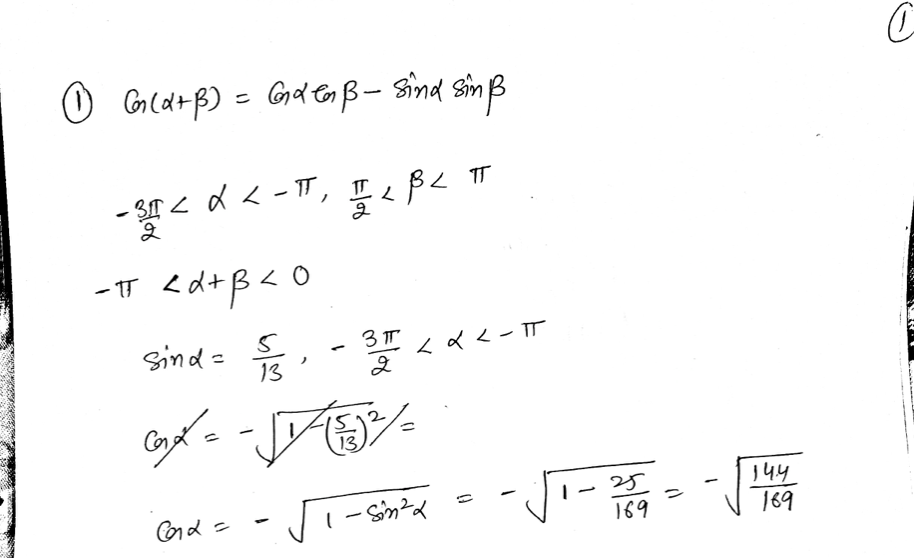 ①
① Cos(α+β) = Cosα Cosβ − Sinα Sinβ
-3π/2 < α < -π, π/2 < β < π
-π < α+β < 0
Sinα = 5/13, -3π/2 < α < -π
Cosα = -√(1-(5/13)²) =
Cosα = -√(1-Sin²α) = -√(1-25/169) = -√(144/169)